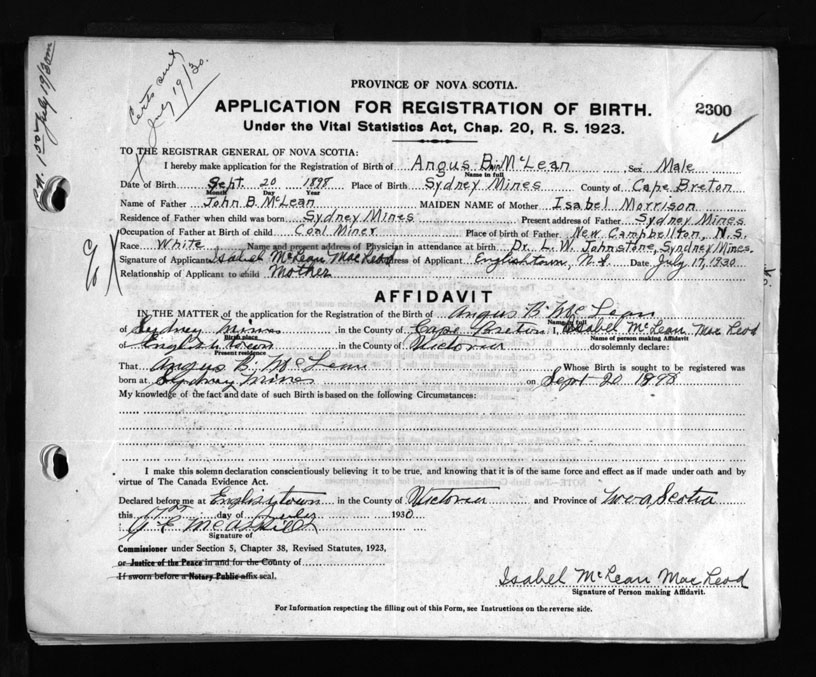 Certs sent
July 19/30.
PROVINCE OF NOVA SCOTIA.
APPLICATION FOR REGISTRATION OF BIRTH.
2300
Under the Vital Statistics Act, Chap. 20, R. S. 1923.
TO THE REGISTRAR GENERAL OF NOVA SCOTIA:
I hereby make application for the Registration of Birth of Angus B. McLean Sex Male
Name in full
Date of Birth Sept. 20 1898 Place of Birth Sydney Mines County of Cape Breton
Month Day Year
Name of Father John B. McLean MAIDEN NAME of Mother Isabel Morrison
Residence of Father when child was born Sydney Mines Present address of Father Sydney Mines
Occupation of Father at Birth of child Coal Miner Place of birth of Father New Campbellton, N.S.
Race White Name and present address of Physician in attendance at birth Dr. L. W. Johnstone, Syndney Mines.
Signature of Applicant Isabel McLean MacLeod Address of Applicant Englishtown, N.S. Date July 17, 1930
Relationship of Applicant to child Mother
AFFIDAVIT
IN THE MATTER of the application for the Registration of the Birth of Angus B. McLean
Name in full
of Sydney Mines in the County of Cape Breton I, Isabel McLean MacLeod
Birth place Name of person making Affidavit
of Englishtown in the County of Victoria do solemnly declare:
Present residence
That Angus B. McLean Whose Birth is sought to be registered was
born at Sydney Mines on Sept 20 1898
My knowledge of the fact and date of such Birth is based on the following Circumstances:
I make this solemn declaration conscientiously believing it to be true, and knowing that it is of the same force and effect as if made under oath and by
virtue of The Canada Evidence Act.
Declared before me at Englishtown in the County of Victoria and Province of Nova Scotia
this 17th day of July 1930
Signature of
Commissioner under Section 5, Chapter 38, Revised Statutes, 1923,
or Justice of the Peace in and for the County of
If sworn before a Notary Public affix seal.
Isabel McLean MacLeod
Signature of Person making Affidavit.
For Information respecting the filling out of this Form, see Instructions on the reverse side.